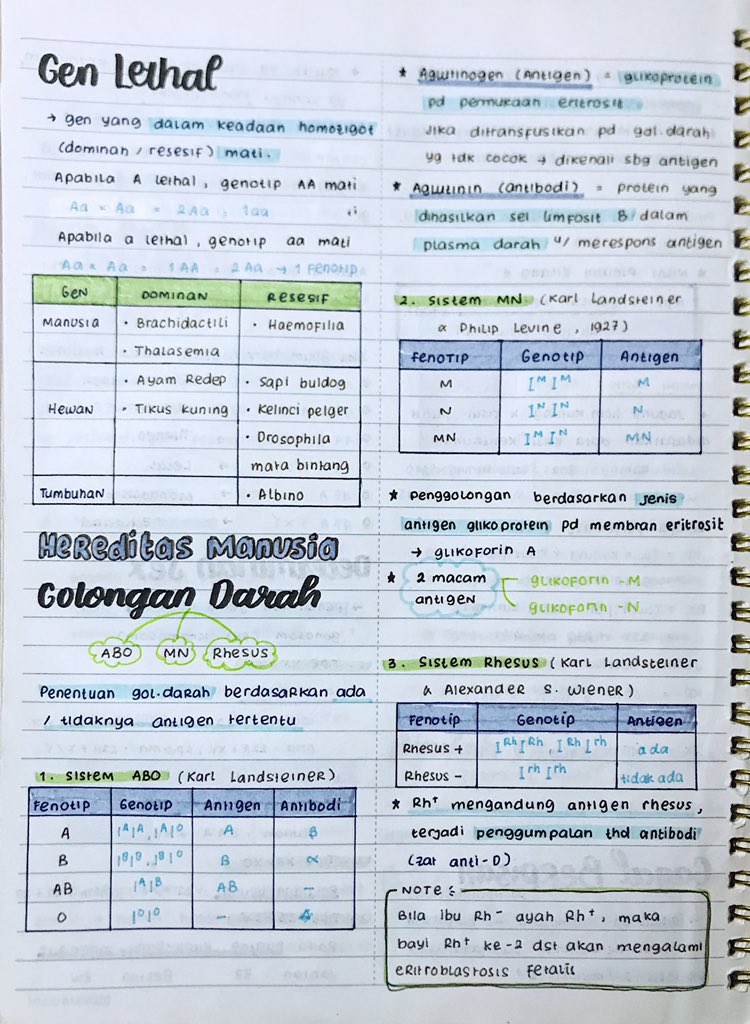 Gen Lethal
→ gen yang dalam keadaan homozigot
(dominan / resesif) mati.
Apabila A lethal, genotip AA mati
Aa × Aa = 2Aa, 1aa
Apabila a lethal, genotip aa mati
Aa × Aa > 1AA, 2Aa → 1 Fenotip
GEN DOMINAN RESESIF
MANUSIA • Brachidactili • Haemofilia
• Thalasemia
HEWAN • Ayam Redep • Sapi buldog
• Tikus kuning • Kelinci pelger
• Drosophila
mata bintang
Tumbuhan • Albino
Hereditas Manusia
Golongan Darah
ABO MN Rhesus
Penentuan gol.darah berdasarkan ada
/ tidaknya antigen tertentu
1. Sistem ABO (Karl Landsteiner)
Fenotip Genotip Antigen Antibodi
A IᴬIᴬ, IᴬIᴼ A β
B IᴮIᴮ, IᴮIᴼ B α
AB IᴬIᴮ AB –
O IᴼIᴼ –
★ Aglutinogen (Antigen) = glikoprotein
pd permukaan eritrosit.
Jika ditransfusikan pd gol.darah
yg tdk cocok → dikenali sbg antigen
★ Aglutinin (antibodi) = protein yang
dihasilkan sel limfosit B/ dalam
plasma darah u/ merespons antigen
2. Sistem MN (Karl Landsteiner
& Philip Levine, 1927)
FENOTIP Genotip Antigen
M IᴹIᴹ M
N IᴺIᴺ N
MN IᴹIᴺ MN
★ penggolongan berdasarkan jenis
antigen glikoprotein pd membran eritrosit
→ glikoforin A
★ 2 macam antigen
glikoforin -M
glikoforin -N
3. Sistem Rhesus (Karl Landsteiner
& Alexander S. Wiener)
Fenotip Genotip Antigen
Rhesus + IᴿʰIᴿʰ, IᴿʰIʳʰ ada
Rhesus - IʳʰIʳʰ tidak ada
★ Rh⁺ mengandung antigen rhesus,
terjadi penggumpalan thd antibodi
(zat anti-D)
NOTE :
Bila Ibu Rh⁻ ayah Rh⁺, maka
bayi Rh⁺ ke-2 dst akan mengalami
eritroblastosis fetalis